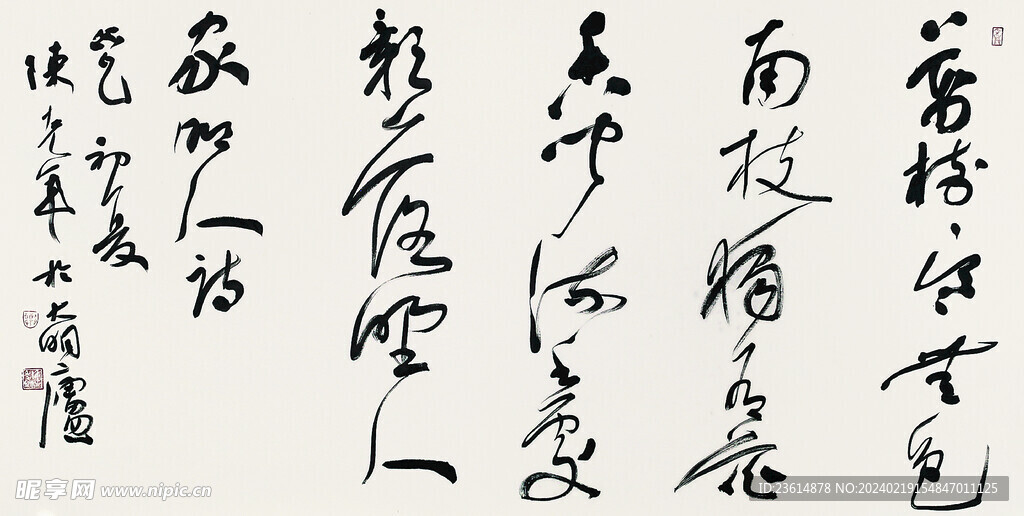 萬樹寒無色
南枝獨有花
香聞流水處
影落野人
家 明人詩
初夏
陳 年於大 廬
昵享网 www.nipic.cn
ID:23614878 NO:20240219154847011125